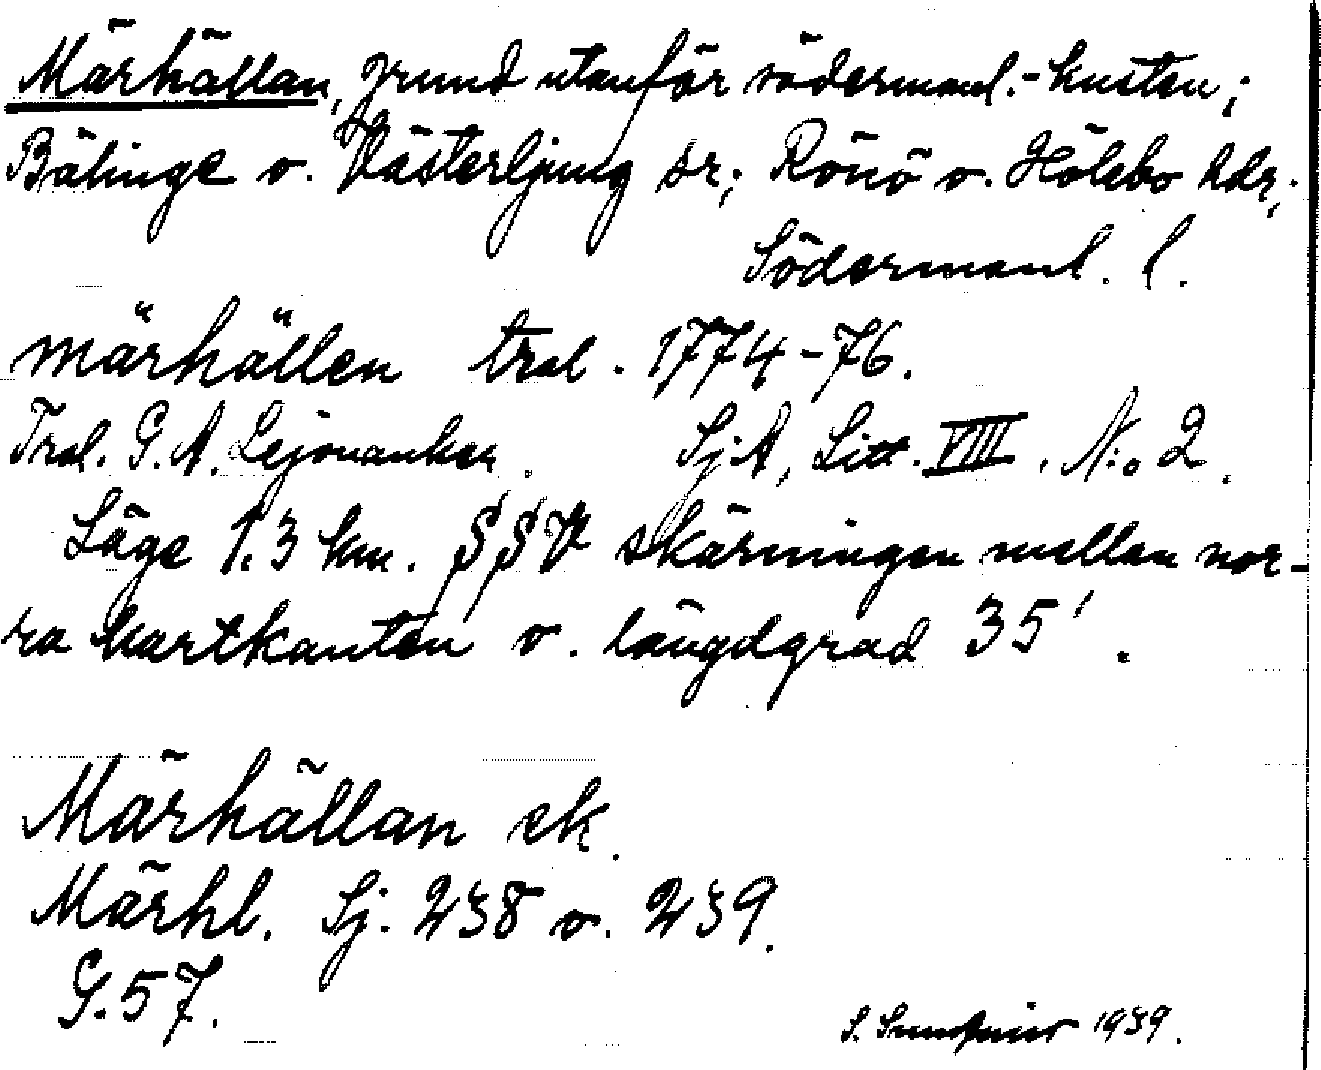 Märhällan, grund utanför södermanl.-kusten;
Bälinge o. Västerljung sr; Rönö o. Hölebo hdr,
Södermanl. l.
märhällen tral. 1774-76.
Tral. G. A. Lejonanker. SjA, Litt. VIII. N:o 2.
Läge 1.3 km. SSV skärningen mellan nor-
ra kartkanten o. längdgrad 35'.
Märhällan ek.
Märhl. Sj. 238 o. 239.
G. 57.
S. 1939.